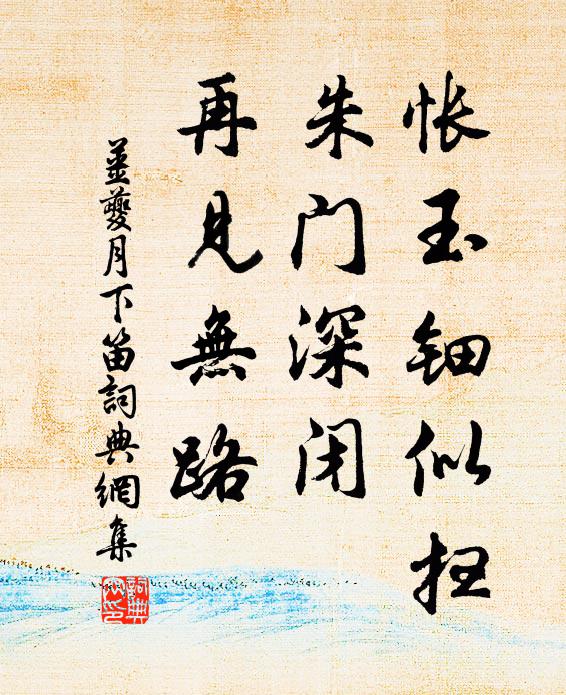 怅玉钿似扫
朱门深闭
再见無路
姜夔月下笛詞典網集